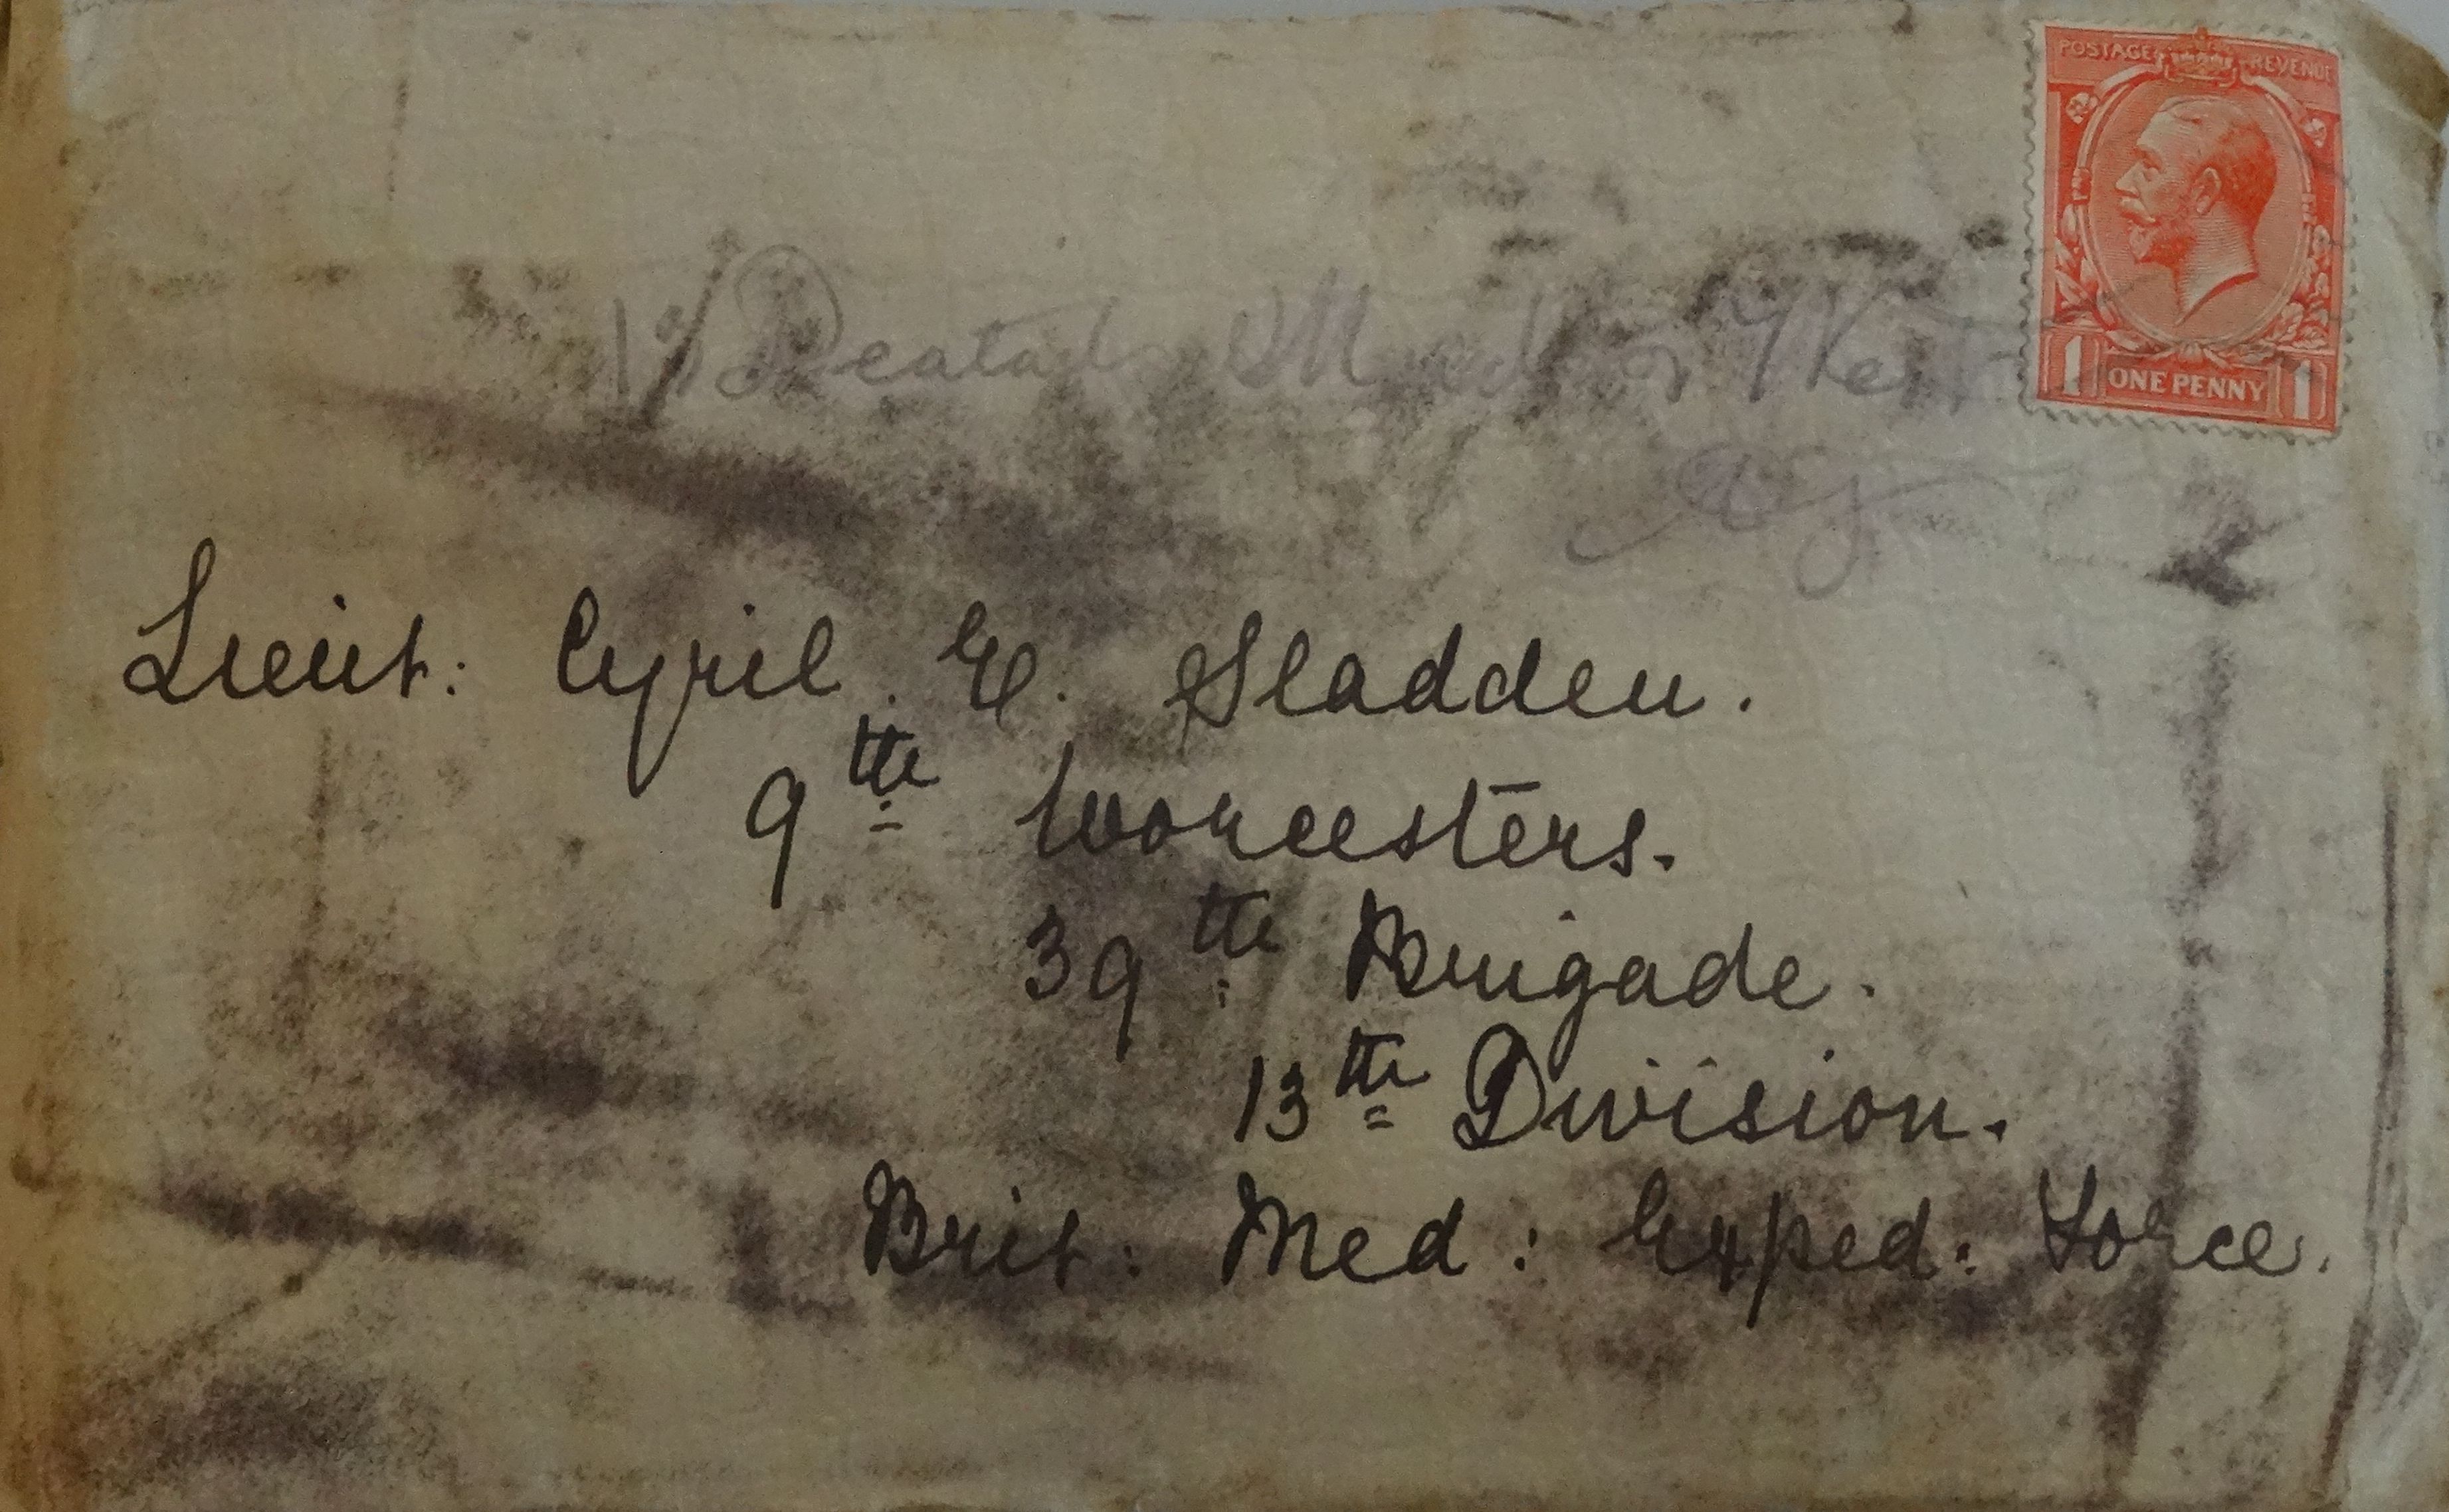 POSTAGE REVENUE
1 ONE PENNY 1
Lieut: Cyril. E. Sladden.
9th Worcesters.
39th Brigade.
13th Division.
Brit: Med: Exped: Force.